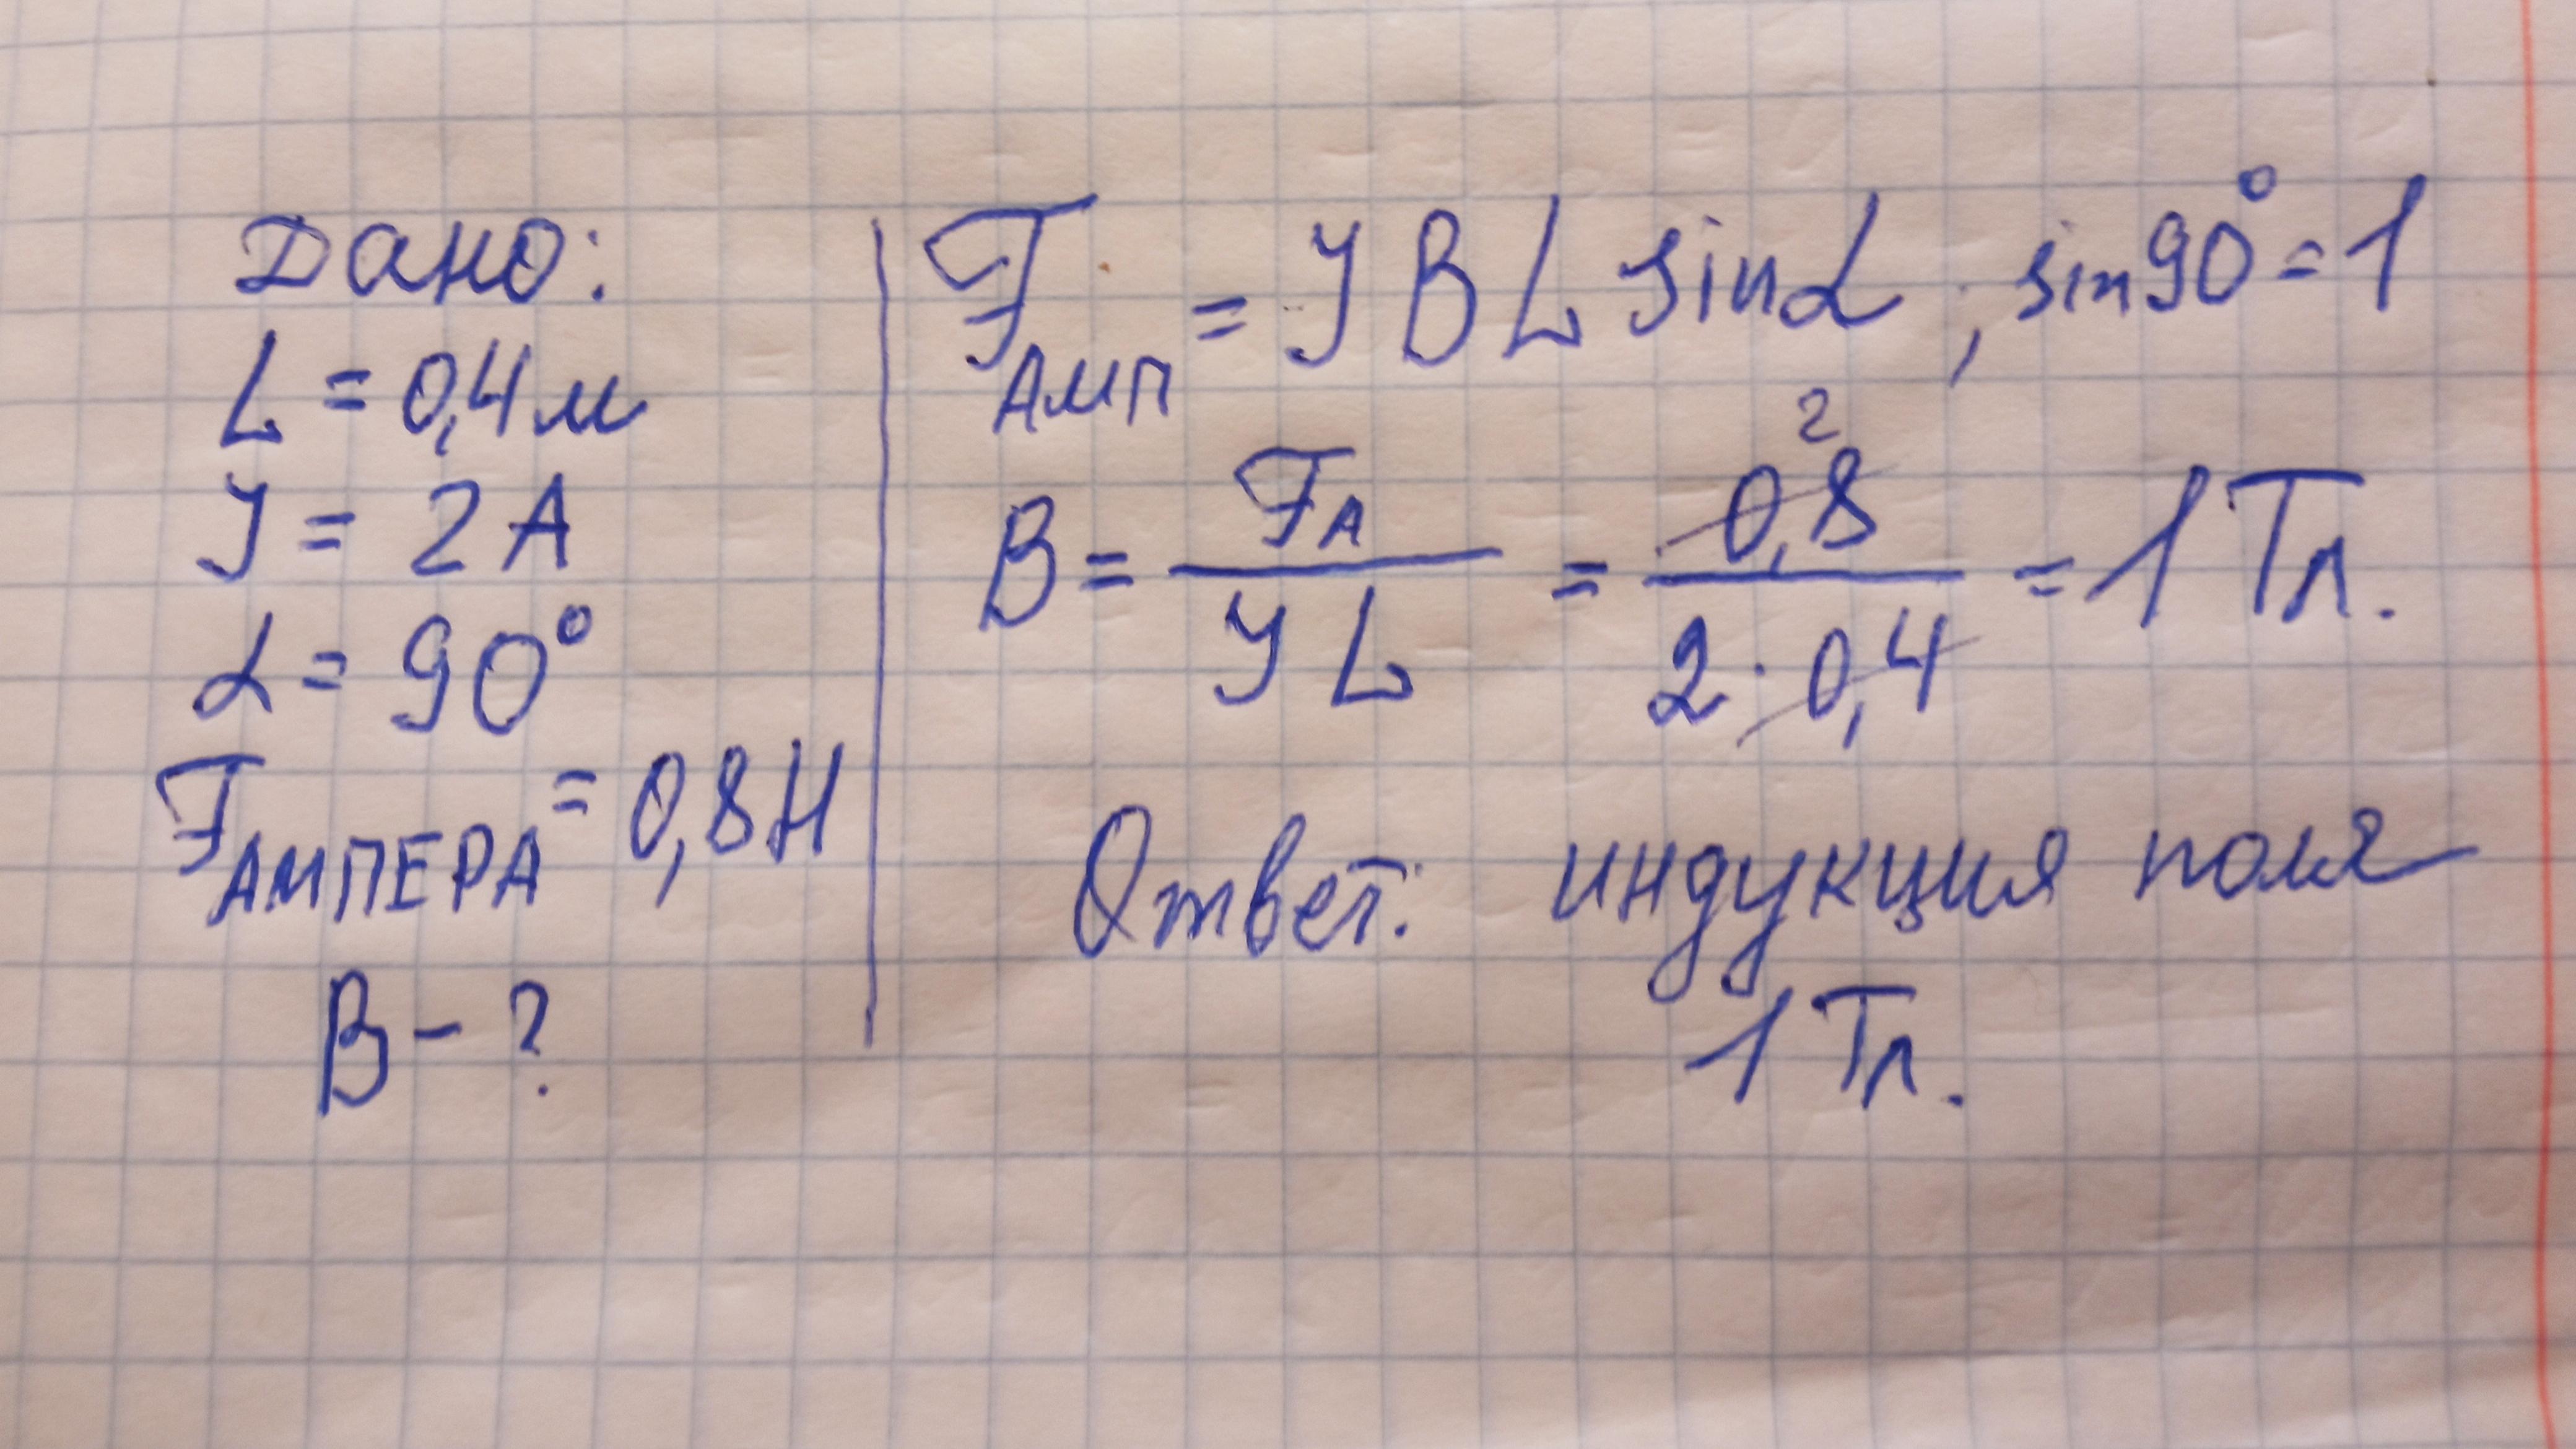 Дано:
L = 0,4 м
J = 2 А
α = 90°
F АМПЕРА = 0,8 Н
B - ?
F АМП = J B L sin α, sin 90° = 1
B = F А / J L = 0,8 / 2 · 0,4 = 1 Тл.
2
Ответ: индукция поля
1 Тл.